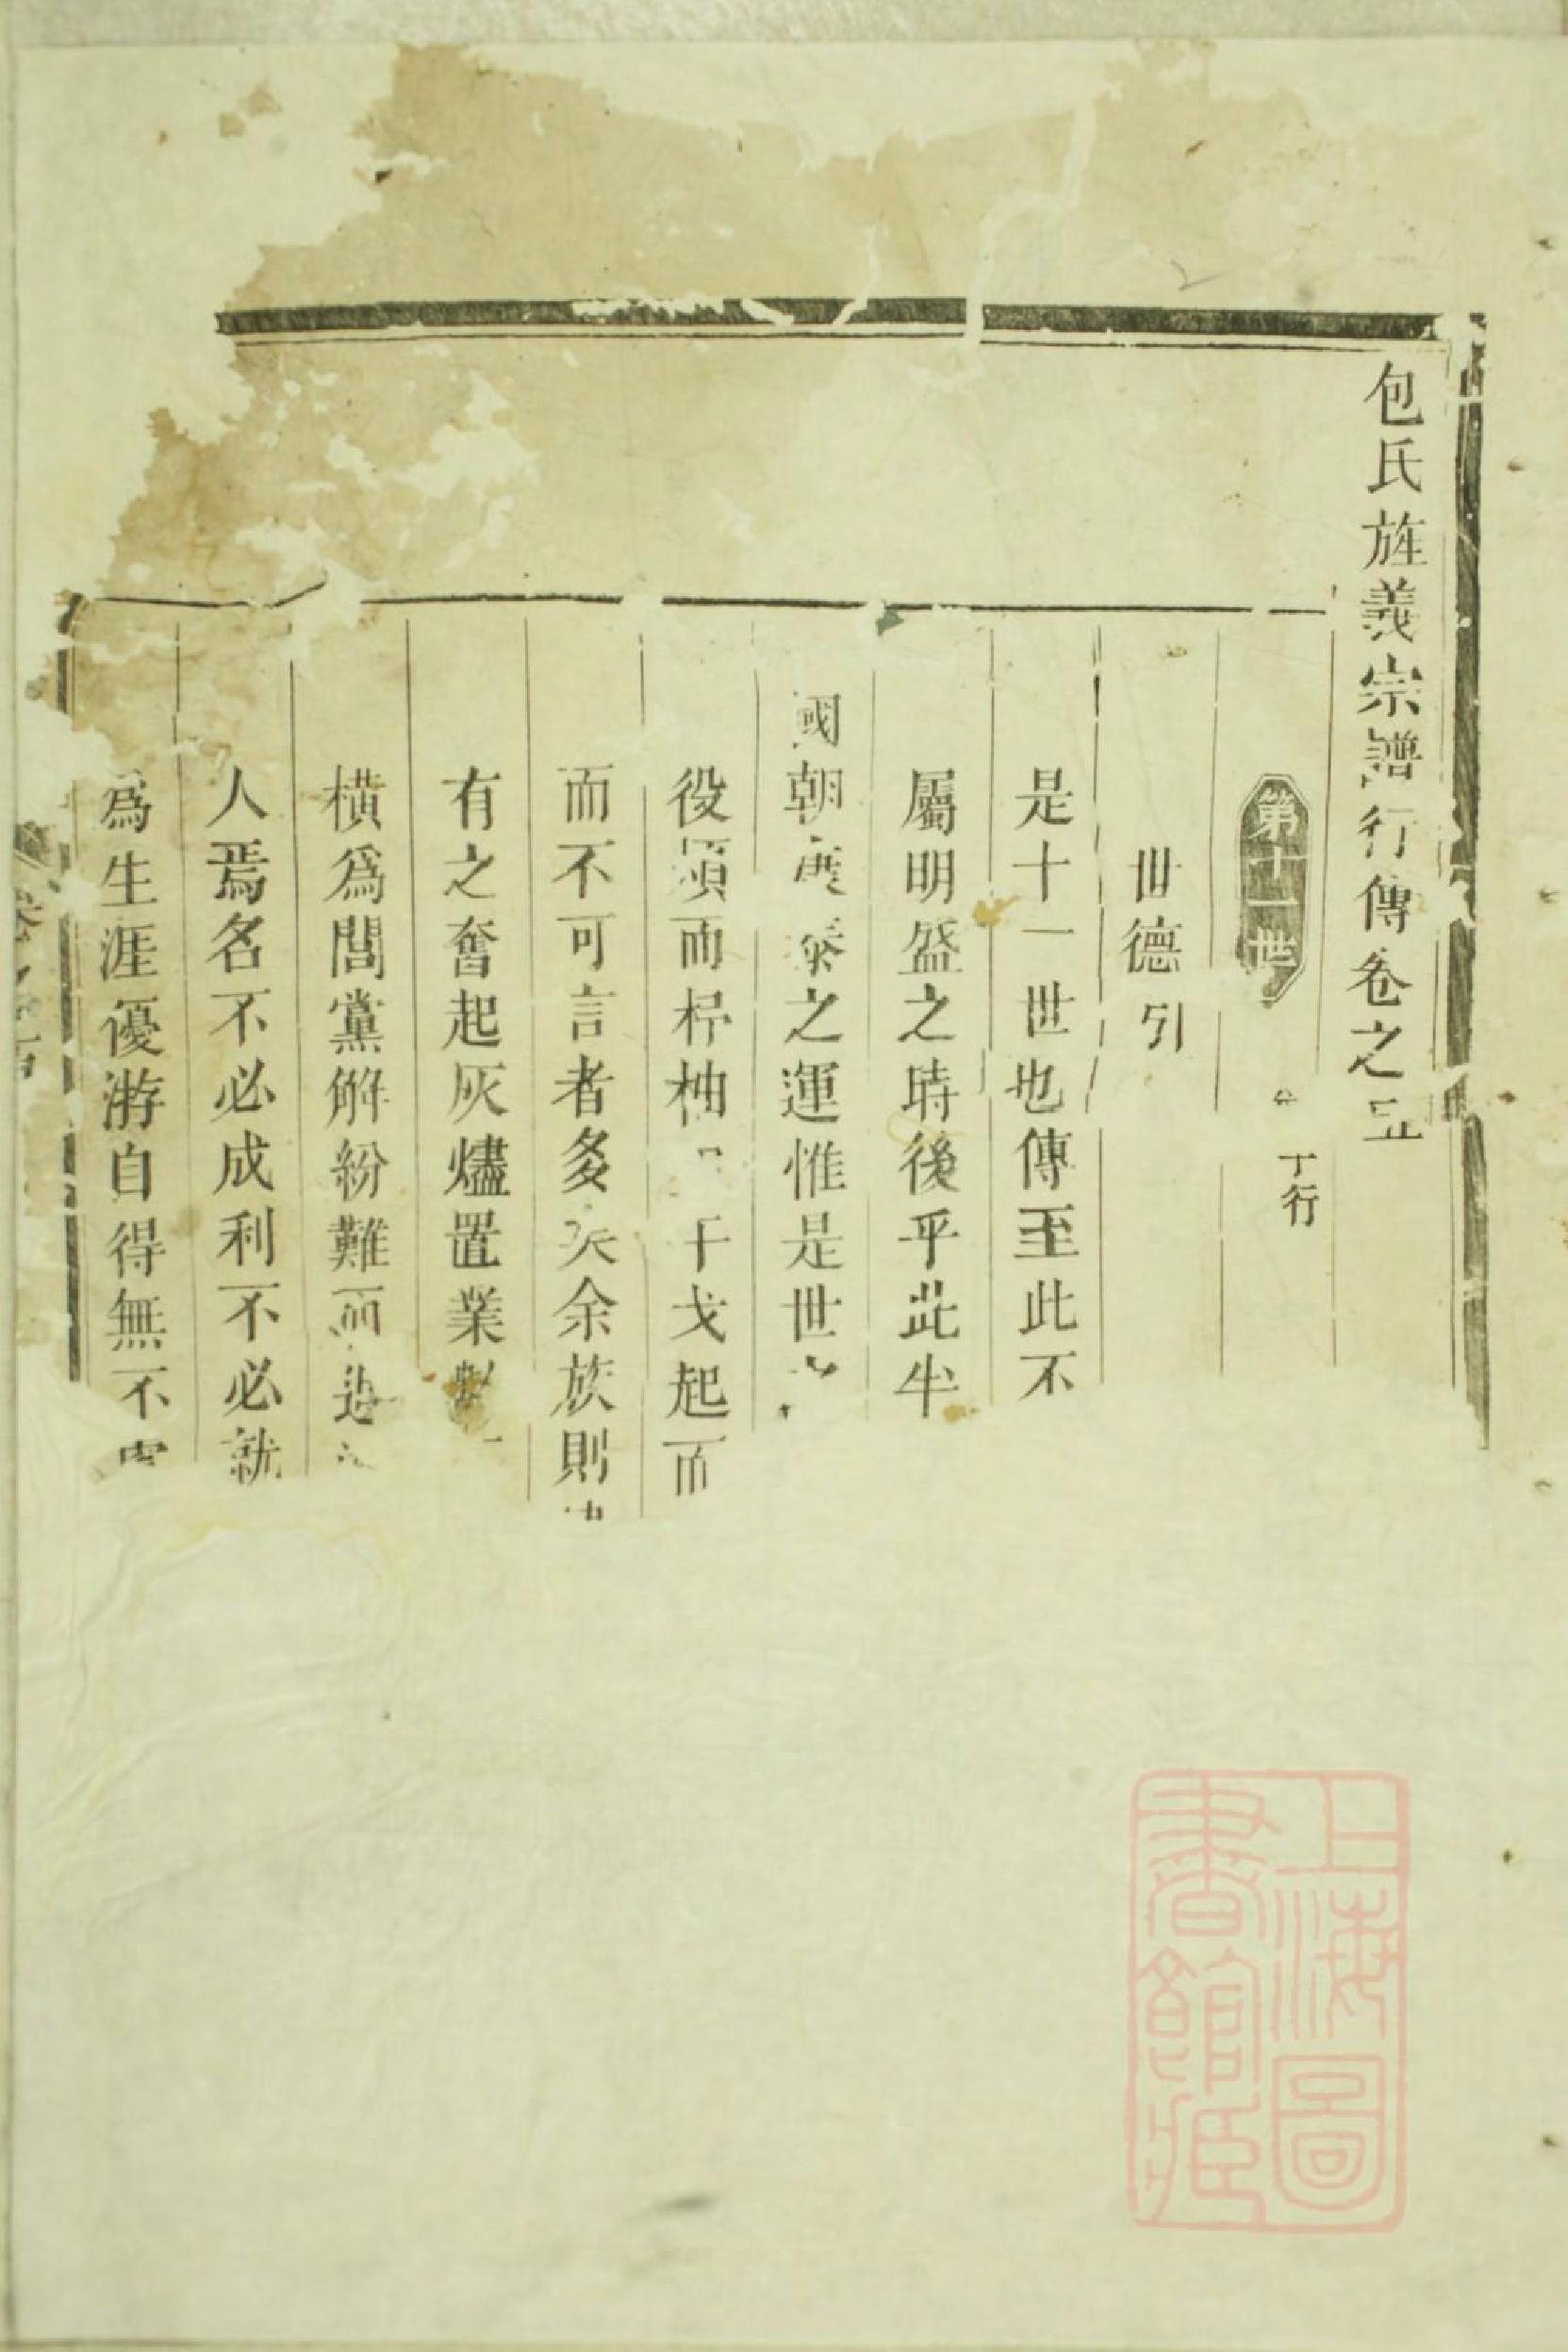 包氏旌義宗譜行傳卷之五
第十一世 行
世德引
是十一世也傳至此不
屬明盛之時後乎此半
國朝泰之運惟是世
役煩而杼柚干戈起而
而不可言者多矣余族則
有之奮起灰燼置業
橫爲閭黨解紛難而
人焉名不必成利不必就
爲生涯優游自得無不
上海圖書館藏